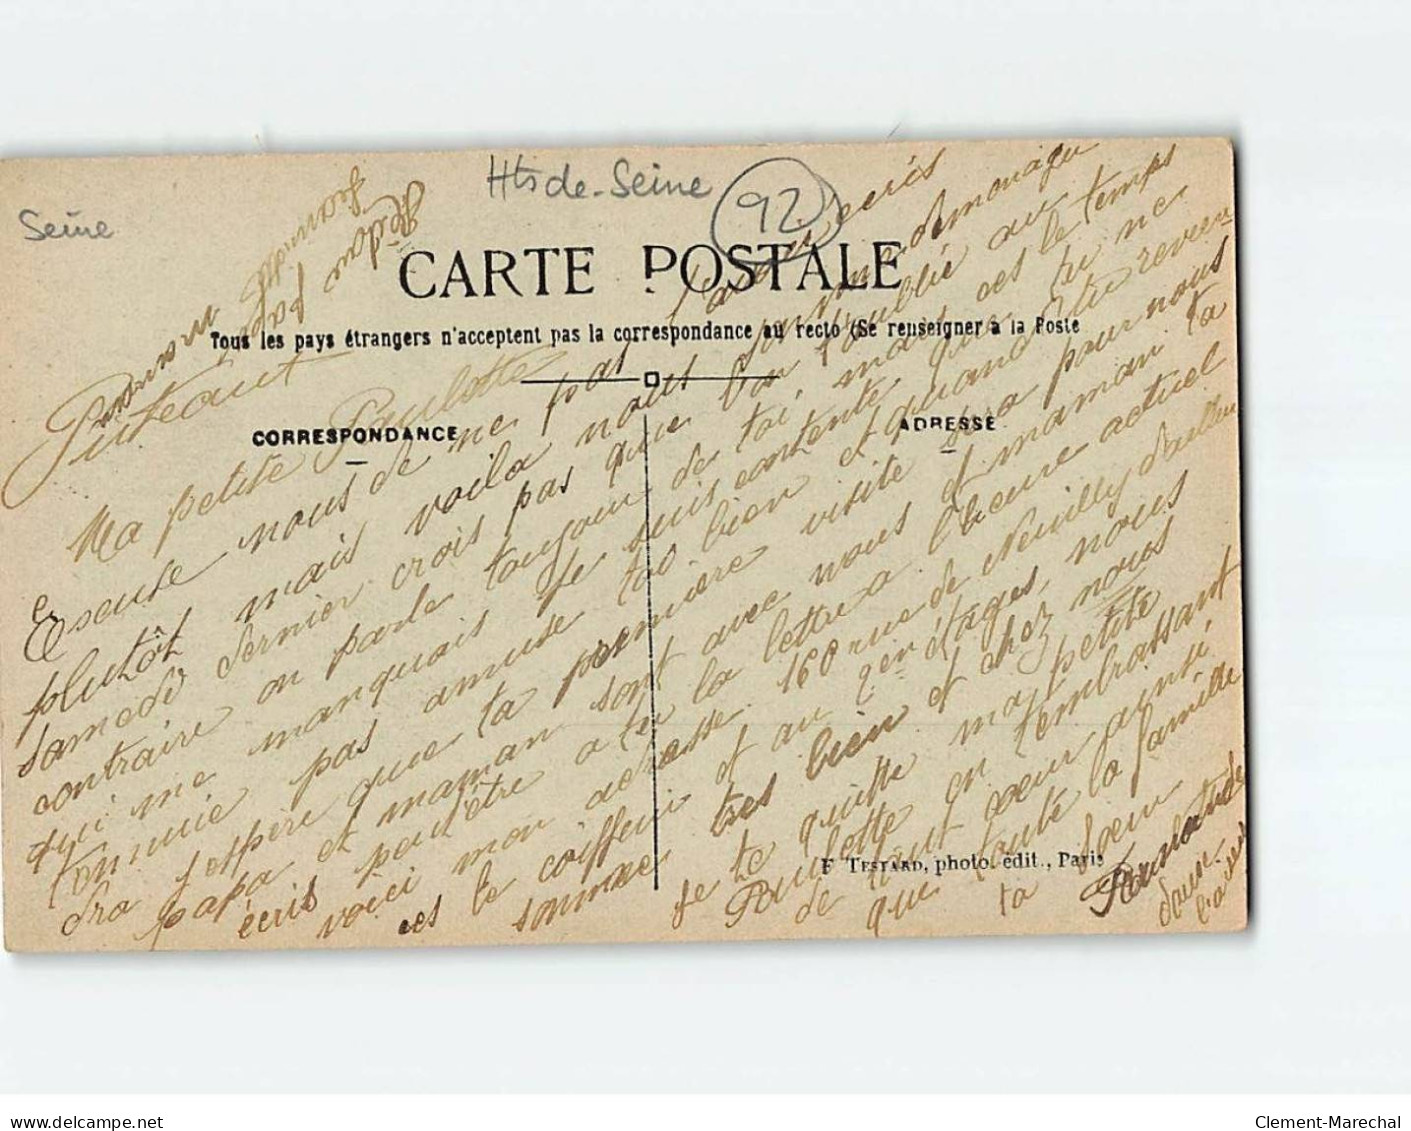 Seine
Hts de-Seine
92
CARTE POSTALE
Tous les pays étrangers n'acceptent pas la correspondance au recto (Se renseigner à la Poste
CORRESPONDANCE
ADRESSE
Puteaux
Ma petite Paulette
Excuse nous de ne pas t'avoir écris
plutôt mais voila nous sommes demenagé
samedi dernier crois pas que l'on t'oublie au
contraire on parle toujour de toi, mais ces le temps
qui me manquais je suis contente que tu ne
t'ennuie pas amuse toi bien et quand tu revien
dra j'espère que ta première visite sera pour nous
papa et maman sont avec nous et maman ta
écrit peutêtre a tu la lettre a l'heure actuel
voici mon adresse 160 rue de Neuilly d'ailleur
ces le coiffeur et au 2em étages, nous
sommes tres bien et chez nous
je te quitte ma petite
Paulette en t'embrassant
de tout coeur ainsi
que toute la famille
ta soeur
F. TESTARD, photo. édit., Paris
delcampe.net
Clement-Marechal